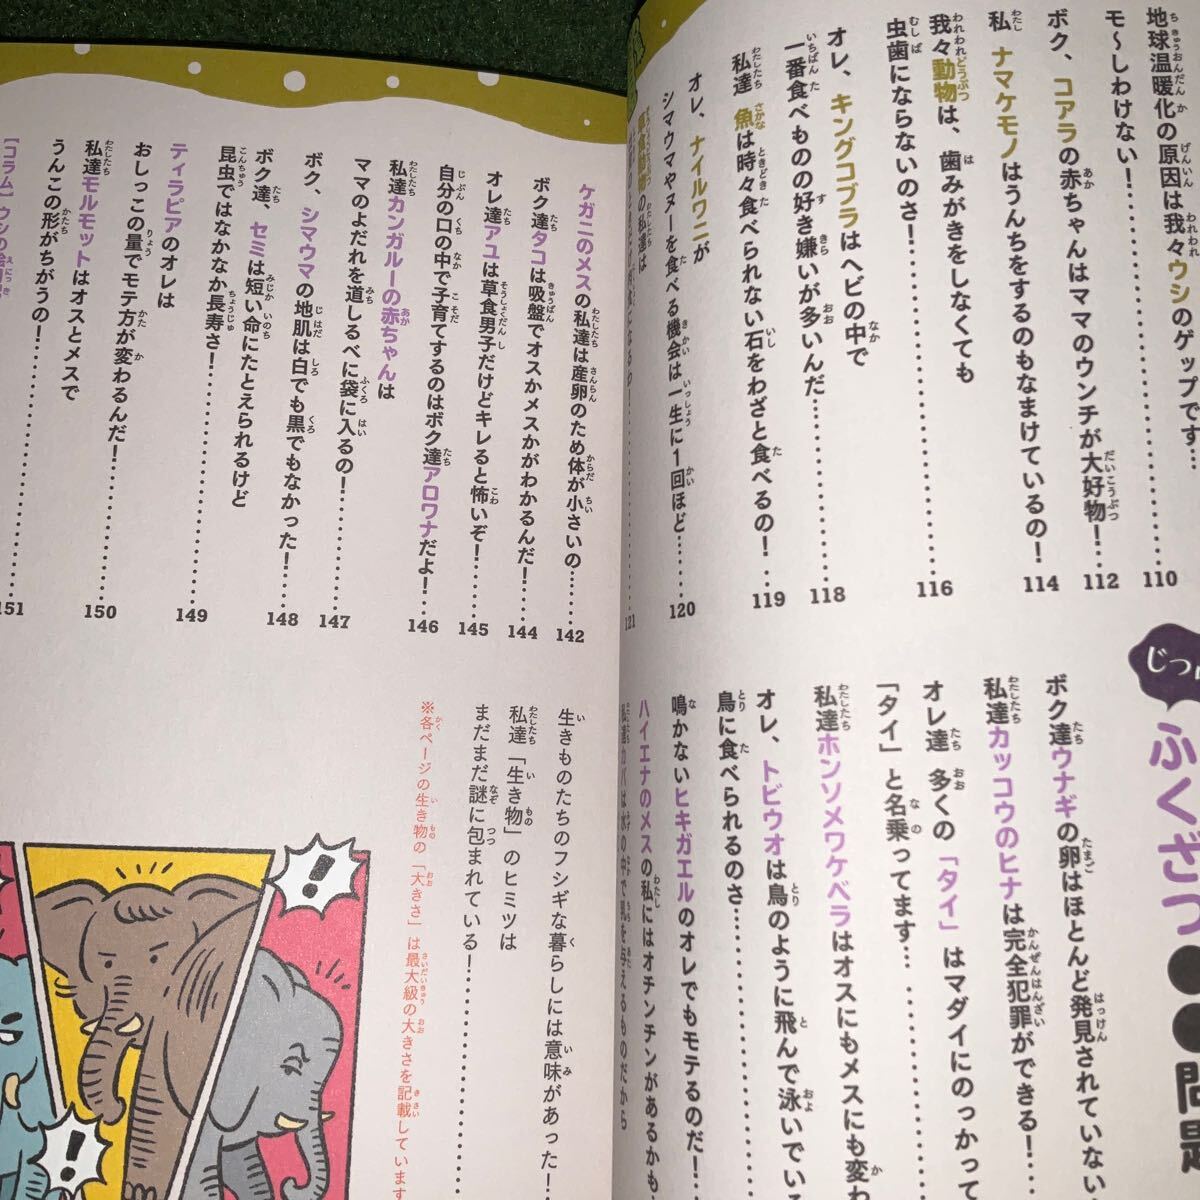 地球温暖化の原因は我々ウシのゲップです…
モ～しわけない！…………110
ボク、コアラの赤ちゃんはママのウンチが大好物！…112
私 ナマケモノはうんちをするのもなまけているの！114
我々動物は、歯みがきをしなくても
虫歯にならないのさ！…………116
オレ、キングコブラはヘビの中で
一番食べものの好き嫌いが多いんだ…………118
私達 魚は時々食べられない石をわざと食べるの！…119
オレ、ナイルワニが
シマウマやヌーを食べる機会は一生に1回ほど……120
の私達は
121
じつ
ふくざつ●●問題
ボク達ウナギの卵はほとんど発見されていない
私達カッコウのヒナは完全犯罪ができる！……
オレ達 多くの「タイ」はマダイにのっかって
「タイ」と名乗ってます…
私達ホンソメワケベラはオスにもメスにも変わ
オレ、トビウオは鳥のように飛んで泳いでい
鳥に食べられるのさ…………
鳴かないヒキガエルのオレでもモテるのだ！…
ハイエナのメスの私にはオチンチンがあるかも
私達カバは水の中で乳を与えるものだから
ケガニのメスの私達は産卵のため体が小さいの……142
ボク達タコは吸盤でオスかメスかがわかるんだ！…144
オレ達アユは草食男子だけどキレると怖いぞ！……145
自分の口の中で子育てするのはボク達アロワナだよ！…146
私達カンガルーの赤ちゃんは
ママのよだれを道しるべに袋に入るの！…………147
ボク、シマウマの地肌は白でも黒でもなかった！…148
ボク達、セミは短い命にたとえられるけど
昆虫ではなかなか長寿さ！…………
ティラピアのオレは
おしっこの量でモテ方が変わるんだ！…………149
私達モルモットはオスとメスで
うんこの形がちがうの！…………150
［コラム］ウシの
151
生きものたちのフシギな暮らしには意味があった！…
私達「生き物」のヒミツは
まだまだ謎に包まれている！…………
※各ページの生き物の「大きさ」は最大級の大きさを記載しています
！
！